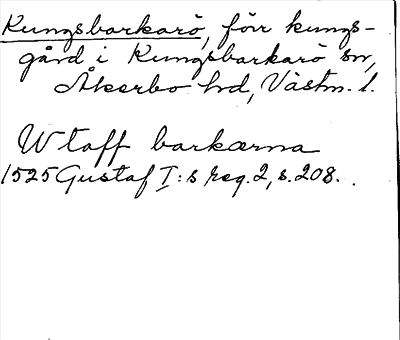 Kungsbarkarö, förr kungs-
gård i Kungsbarkarö sn,
Åkerbo hd, Västm. l.
Wtaff barkarna
1525 Gustaf I:s reg. 2, s. 208.